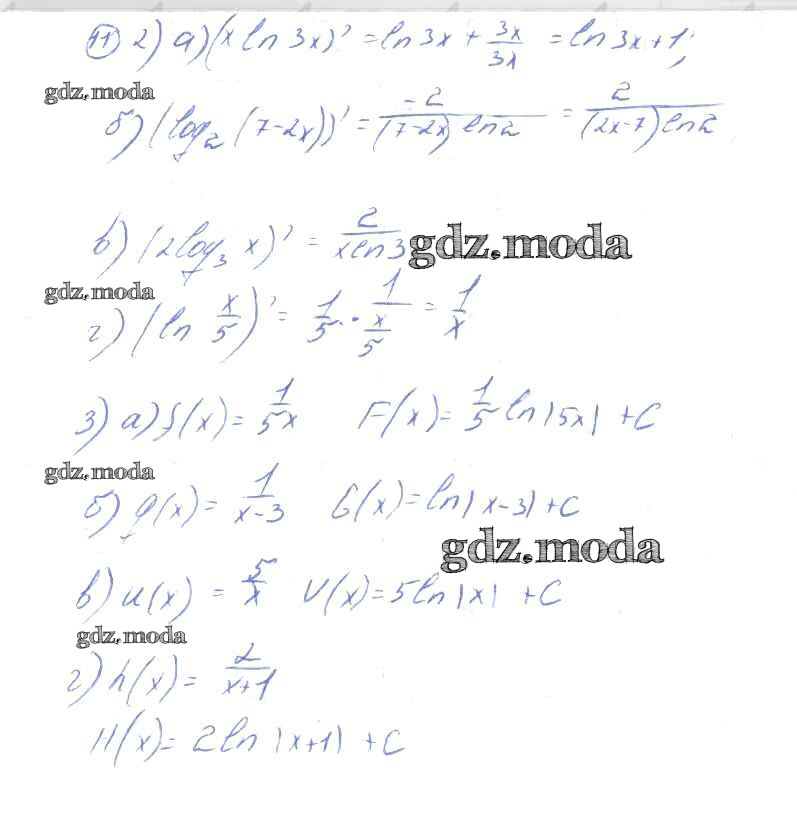 11) 2) а) (x ln 3x)' = ln 3x + 3x/3x = ln 3x + 1;
gdz.moda
б) (log₂ (7-2x))' = -2/((7-2x) ln 2) = 2/((2x-7) ln 2)
в) (2 log₃ x)' = 2/(x ln 3) gdz.moda
gdz.moda
г) (ln x/5)' = 1/5 · 1/(x/5) = 1/x
3) а) f(x) = 1/5x F(x) = 1/5 ln |5x| + C
gdz.moda
б) g(x) = 1/(x-3) G(x) = ln |x-3| + C
gdz.moda
в) u(x) = 5/x V(x) = 5 ln |x| + C
gdz.moda
г) h(x) = 2/(x+1)
H(x) = 2 ln |x+1| + C